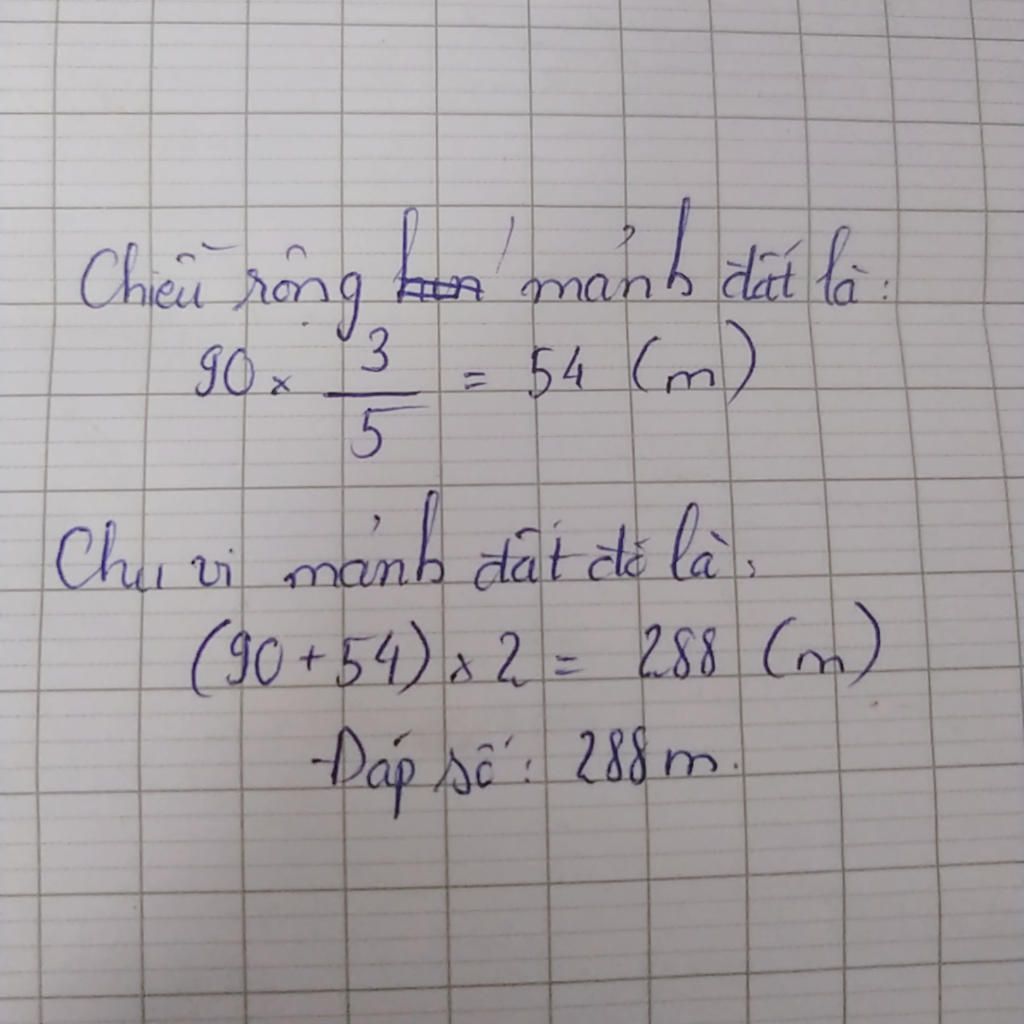 Chiều rộng mảnh đất là:
90 × 3/5 = 54 (m)
Chu vi mảnh đất đó là:
(90 + 54) × 2 = 288 (m)
Đáp số: 288 m.